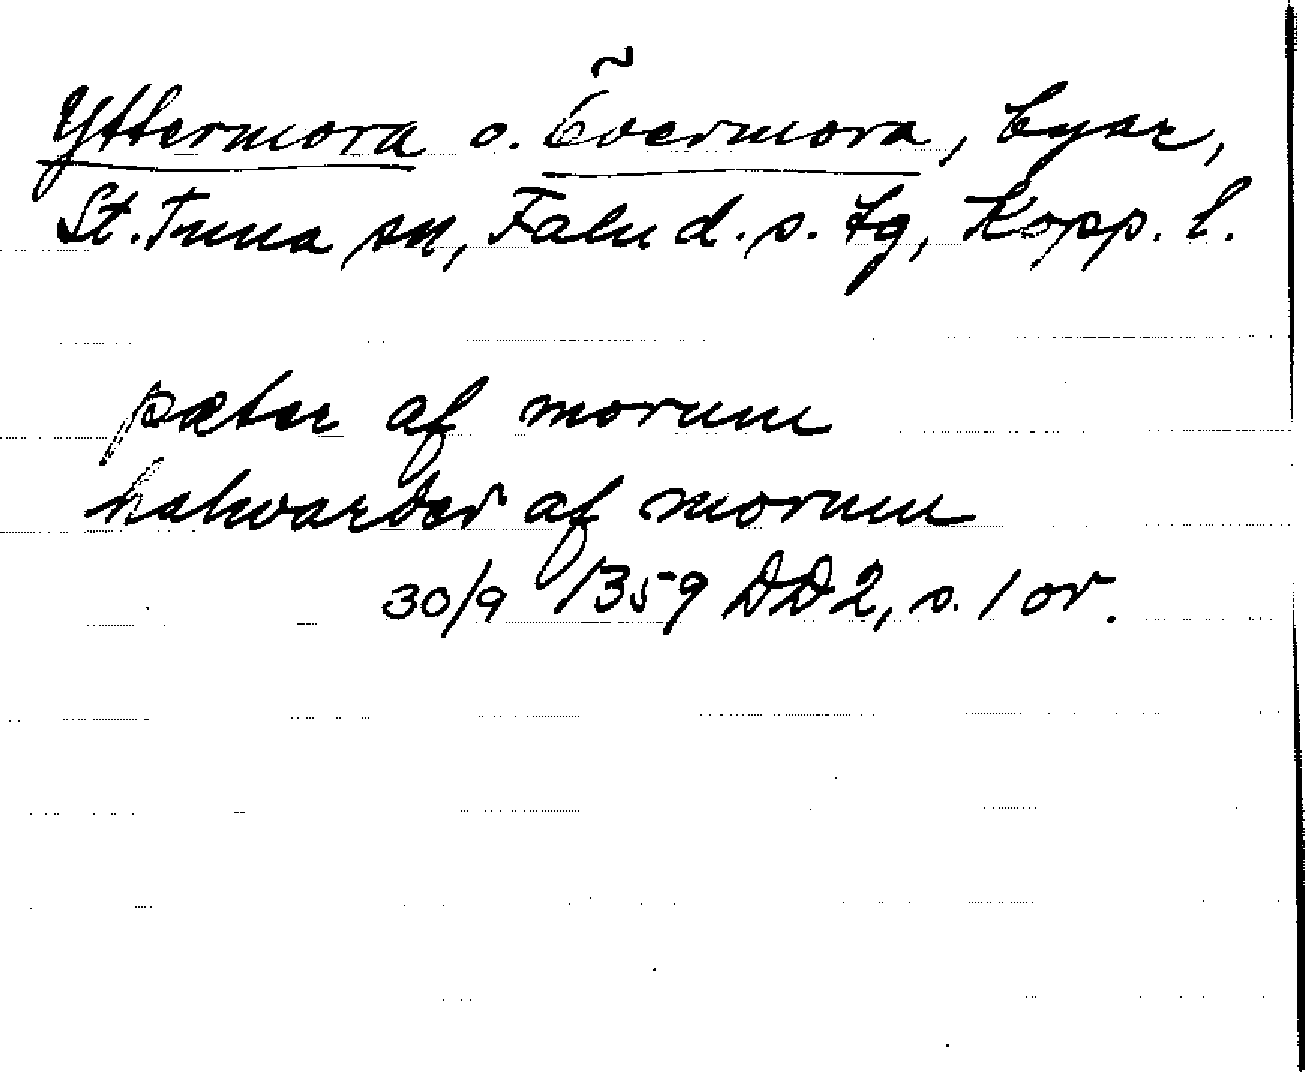 Yttermora o. Övermora, byar,
St. Tuna sn, Falu d. s. tg, Kopp. l.
pæter af morum
halwarder af morum
30/9 1359 DD2, s. 1 or.